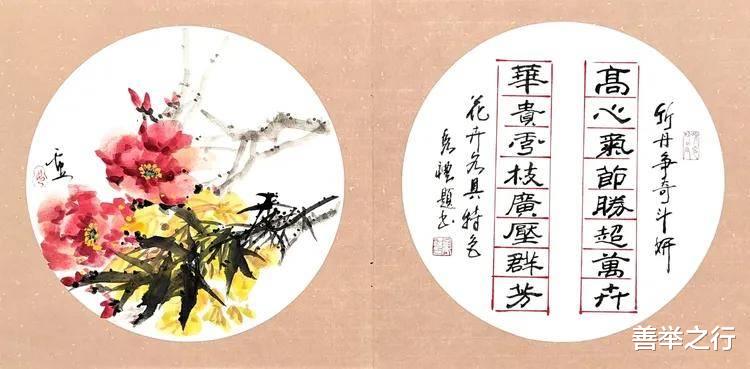 竹丹争奇斗妍
髙心氣節勝超萬卉
華貴枝廣壓群芳
花卉各具特色
禮題
善举之行